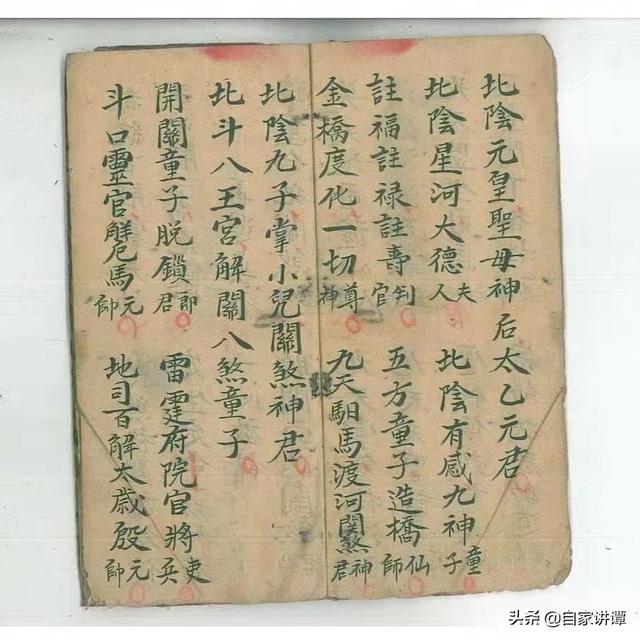 北陰元皇聖母神后太乙元君
北陰星河大德夫人 北陰有感九神童子
註福註禄註壽判官 五方童子造橋仙師
金橋度化一切尊神 九天馹馬渡河関煞神君
北陰九子掌小兒關煞神君
北斗八王宮解關八煞童子
開關童子脱鎖即君 雷霆府院官將吏兵
斗口靈官解厄馬元帥 地司百解太歲殷元帥
头条 @自家讲谭